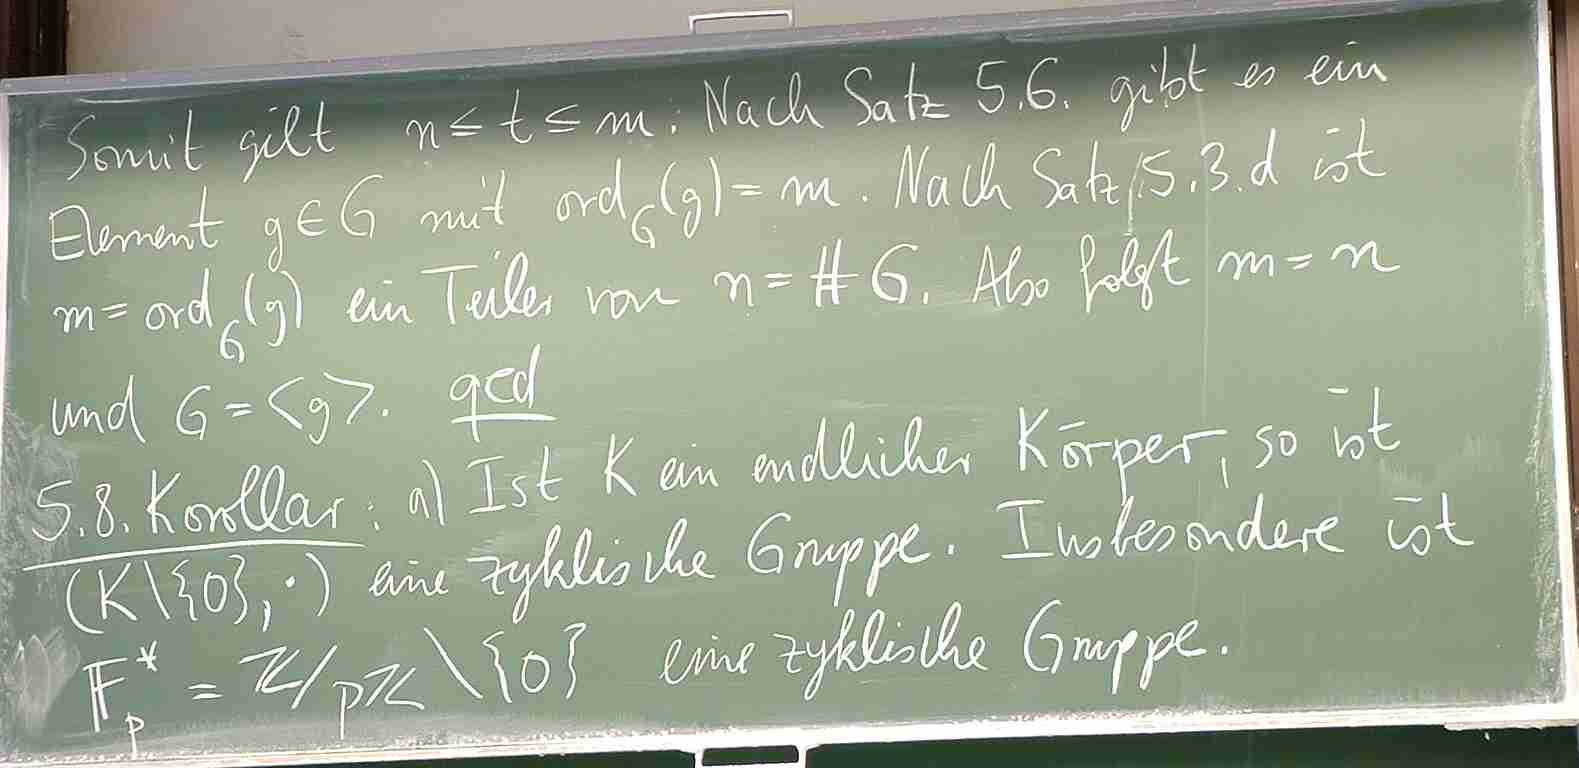 Somit gilt n ≤ t ≤ m. Nach Satz 5.6. gibt es ein
Element g ∈ G mit ord_G(g) = m. Nach Satz 5.3.d ist
m = ord_G(g) ein Teiler von n = #G. Also folgt m = n
und G = <g>. qed
5.8. Korollar: a) Ist K ein endlicher Körper, so ist
(K\{0}, ·) eine zyklische Gruppe. Insbesondere ist
𝔽_p^* = ℤ/pℤ \ {0} eine zyklische Gruppe.